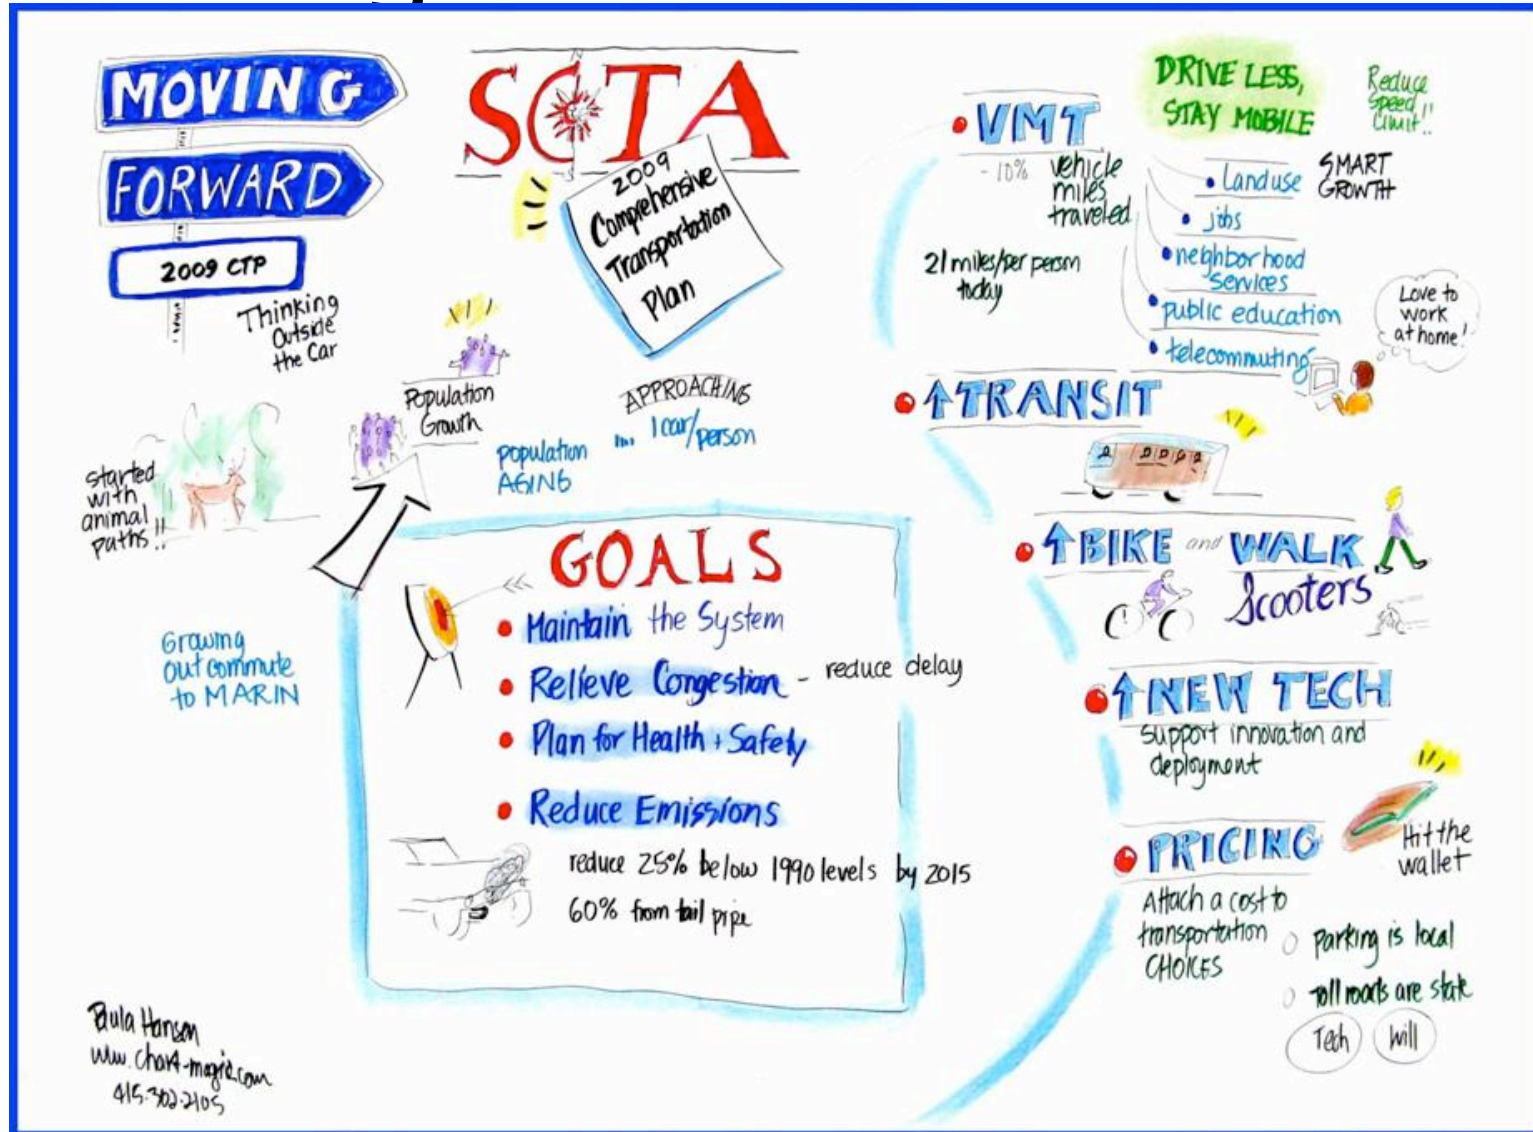 MOVING
FORWARD
2009 CTP
Thinking
Outside
the Car
SCTA
2009
Comprehensive
Transportation
Plan
Population
Growth
population
AGING
APPROACHING
... 1 car/person
started
with
animal
paths!!
Growing
out commute
to MARIN
GOALS
Maintain the System
Relieve Congestion - reduce delay
Plan for Health + Safety
Reduce Emissions
reduce 25% below 1990 levels by 2015
60% from tail pipe
VMT
-10% vehicle
miles
traveled
21 miles/per person
today
DRIVE LESS,
STAY MOBILE
Reduce
Speed
Limit!!
Land use
SMART
GROWTH
jobs
neighborhood
services
public education
telecommuting
Love to
work
at home!
↑TRANSIT
↑BIKE and WALK
Scooters
↑NEW TECH
support innovation and
deployment
PRICING
Hit the
wallet
Attach a cost to
transportation
CHOICES
parking is local
Toll roads are state
Tech
Will
Paula Hansen
www.chart-magic.com
415.302.2105